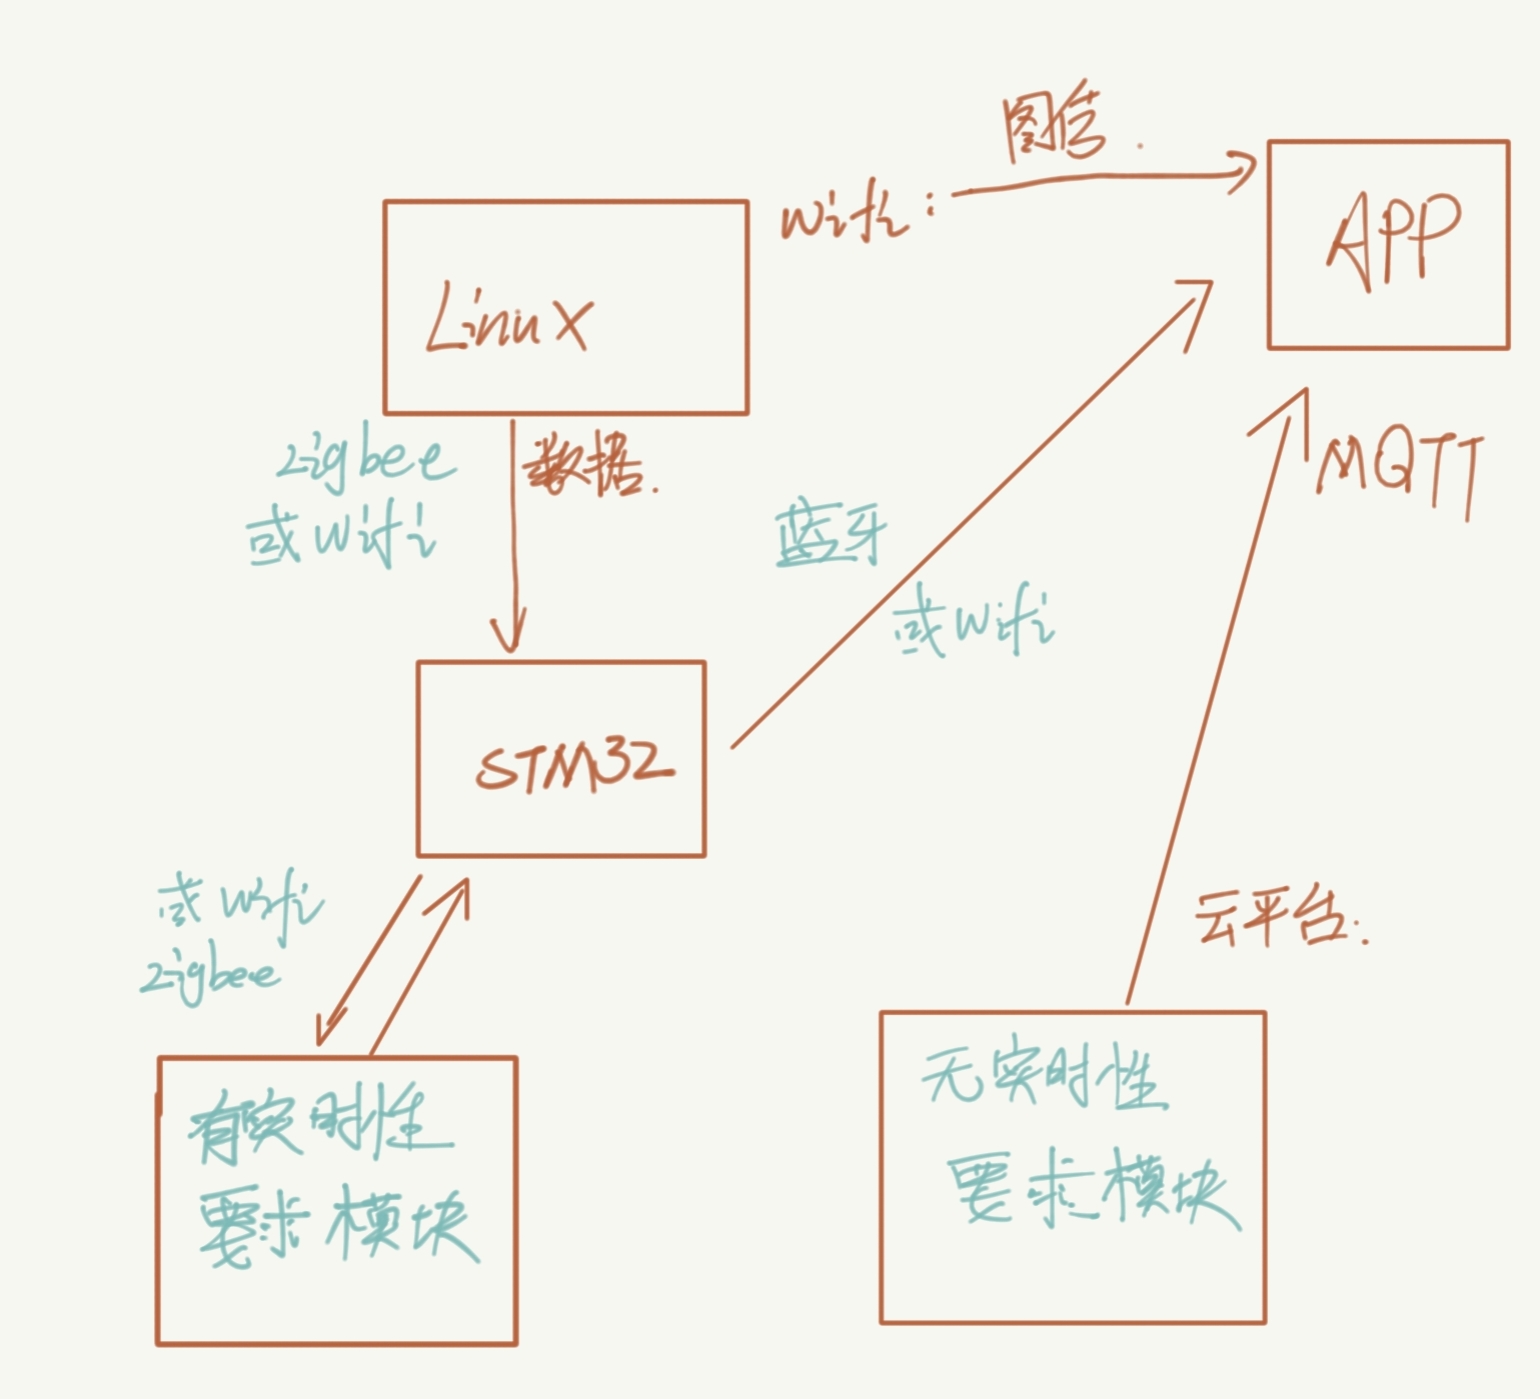 图传.
wifi:
APP
Linux
zigbee
数据.
或wifi
MQTT
蓝牙
或wifi
STM32
或wifi
zigbee
云平台.
有实时性
要求模块
无实时性
要求模块